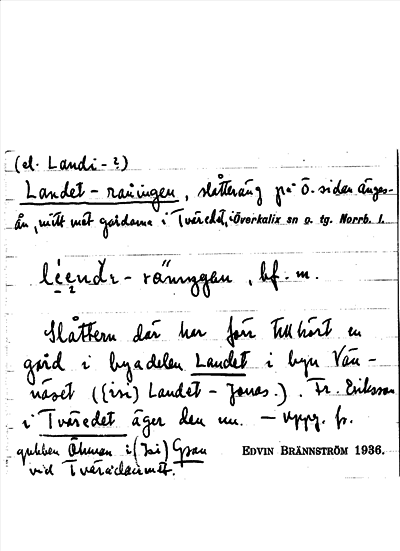 (el. Landi - ?)
Landet - raningen, slåtteräng på ö. sidan Änges-
ån, mitt mot gårdarna i Tväredet, i Överkalix sn o. tg. Norrb. l.
bf. m.
Slåttern där har förr tillhört en
gård i byadelen Landet i byn Vän-
näset ((isi) Landet - Jonas.). Fr. Eriksson
i Tväredet äger den nu. — uppg. fr.
gubben Öhman i (isi) Gran
vid Tväråelandet.
EDVIN BRÄNNSTRÖM 1936.